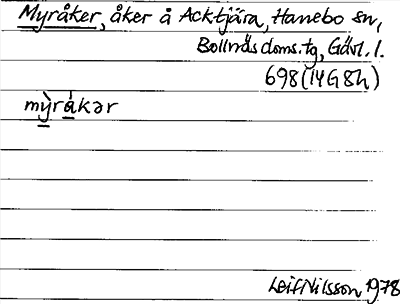 Myråker, åker å Acktjära, Hanebo sn,
Bollnäs doms.tg, Gävl. l.
698 (14G8h)
mẏ̠̀rȧ̠kər
Leif Nilsson 1978